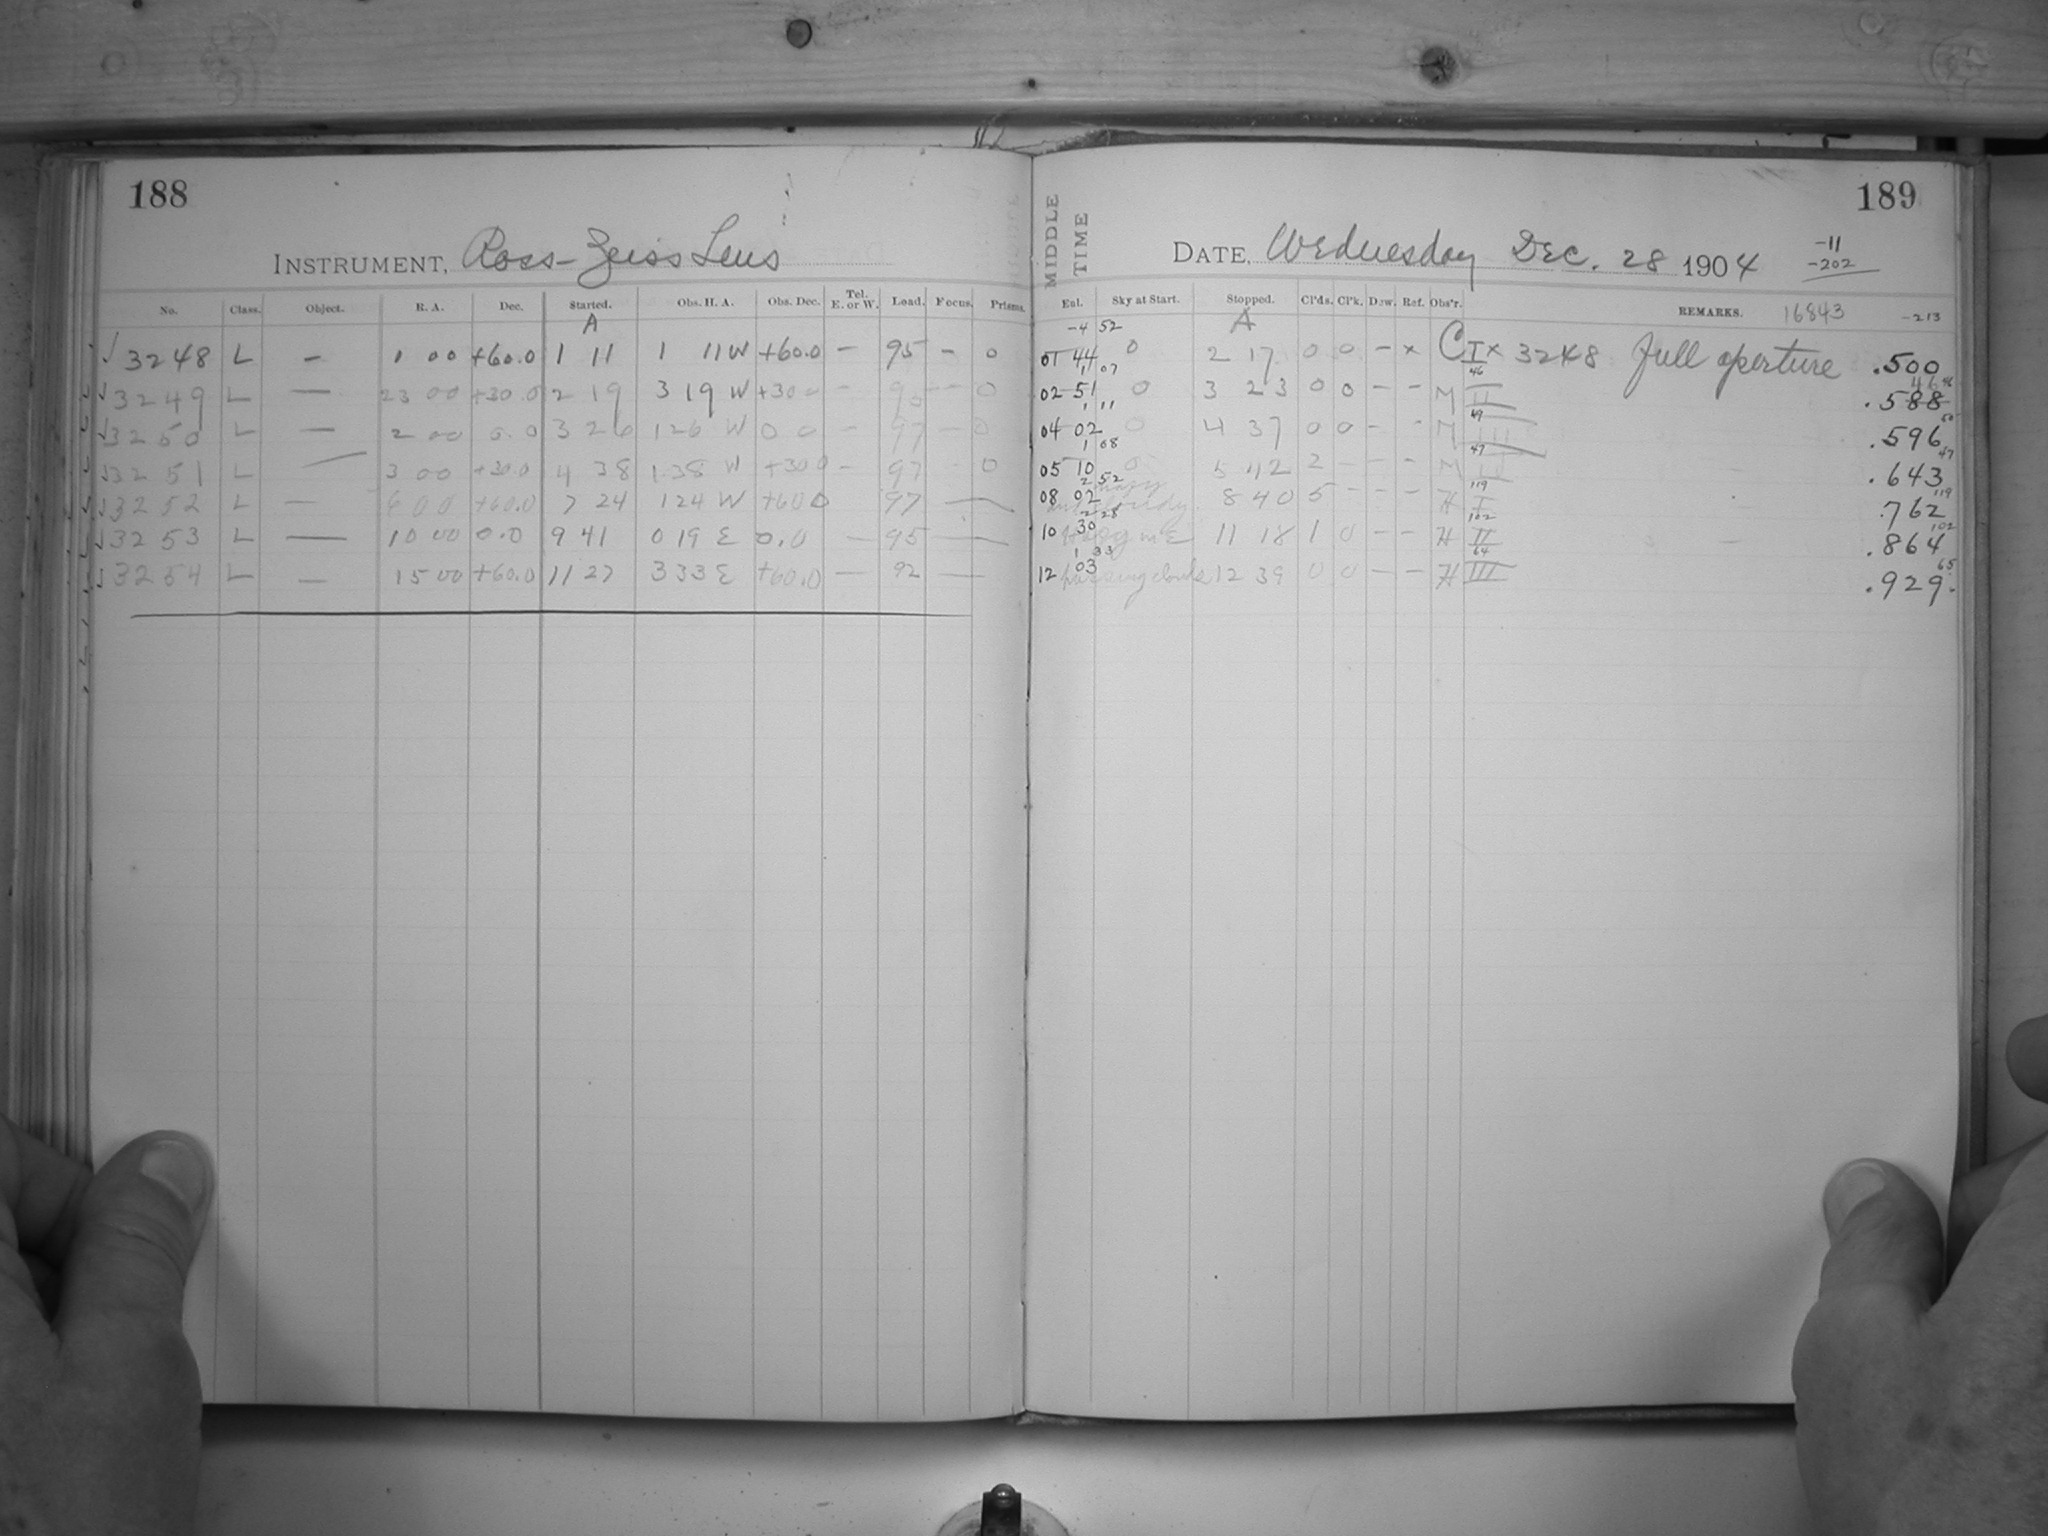 188
INSTRUMENT, Ross-Zeiss Lens
No. Class. Object. R. A. Dec. Started. Obs. H. A. Obs. Dec. Tel. E. or W. Load. Focus. Prisms.
A
√ 3248 L — 1 00 +60.0 1 11 1 11 W +60.0 — 95 - 0
√ 3249 L — 23 00 +30.0 2 19 3 19 W +30 0 - — 0
√ 3250 L — 2 00 0.0 3 26 1 26 W 0 0 - 97 - 0
√ 3251 L — 3 00 +30.0 4 38 1 38 W +30 0 — 97 - 0
√ 3252 L — 6 00 +60.0 7 24 1 24 W +60 0 97 —
√ 3253 L — 10 00 0.0 9 41 0 19 E 0.0 — 95 —
√ 3254 L — 15 00 +60.0 11 27 3 33 E +60.0 — 92 —
MIDDLE TIME
189
DATE, Wednesday Dec. 28 1904
-11
-202
Ent. Sky at Start. Stopped. Cl'ds. Cl'k. Dew. Ref. Obs'r. REMARKS. 16843 -213
-4 52 A
01 44 0 2 17 0 0 — x C I x 3248 Full aperture .500
1 07 46 46
02 51 0 3 23 0 0 - - M II .588
1 11 49 50
04 02 0 4 37 0 0 - - M III .596
1 08 47 47
05 10 0 5 42 2 - - - M .643
2 52 119 119
08 02 hazy and cloudy 8 40 5 - - - H I .762
2 28 102 102
10 30 hazy in E 11 18 1 0 - - H II .864
1 33 64 65
12 03 passing clouds 12 39 0 0 - - H III .929